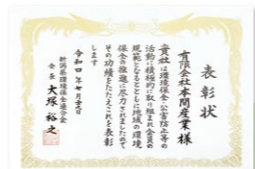 表彰状
有限会社本間産業 様
貴社は環境保全・公害防止等の
活動に積極的に取り組まれ会員の
規範となるとともに地域の環境
保全の推進に尽力されましたので
その功績をたたえこれを表彰
します
令和四年七月
新潟県環境保全連合会
会長 大塚裕之